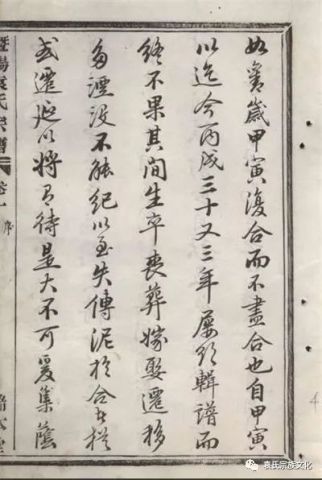 如曩歲甲寅復合而不盡合也自甲寅
以迄今丙戌三十又三年屢欲輯譜而
終不果其間生卒喪葬嫁娶遷移
多湮没不能紀以至失傳泥於合
遷延以將有待是大不可爰集蔭
暨陽袁氏宗譜 卷一 序
袁氏宗族文化